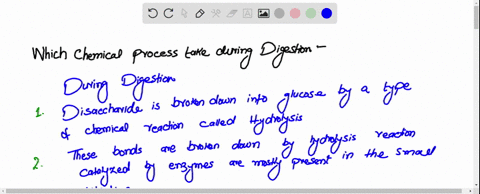 Which Chemical process take during Digestion -
During Digestion.
1. Disaccharide is broken down into glucose by a type
of chemical reaction called Hydrolysis
2. These bonds are broken down by hydrolysis reaction
catalyzed by enzymes are mostly present in the small